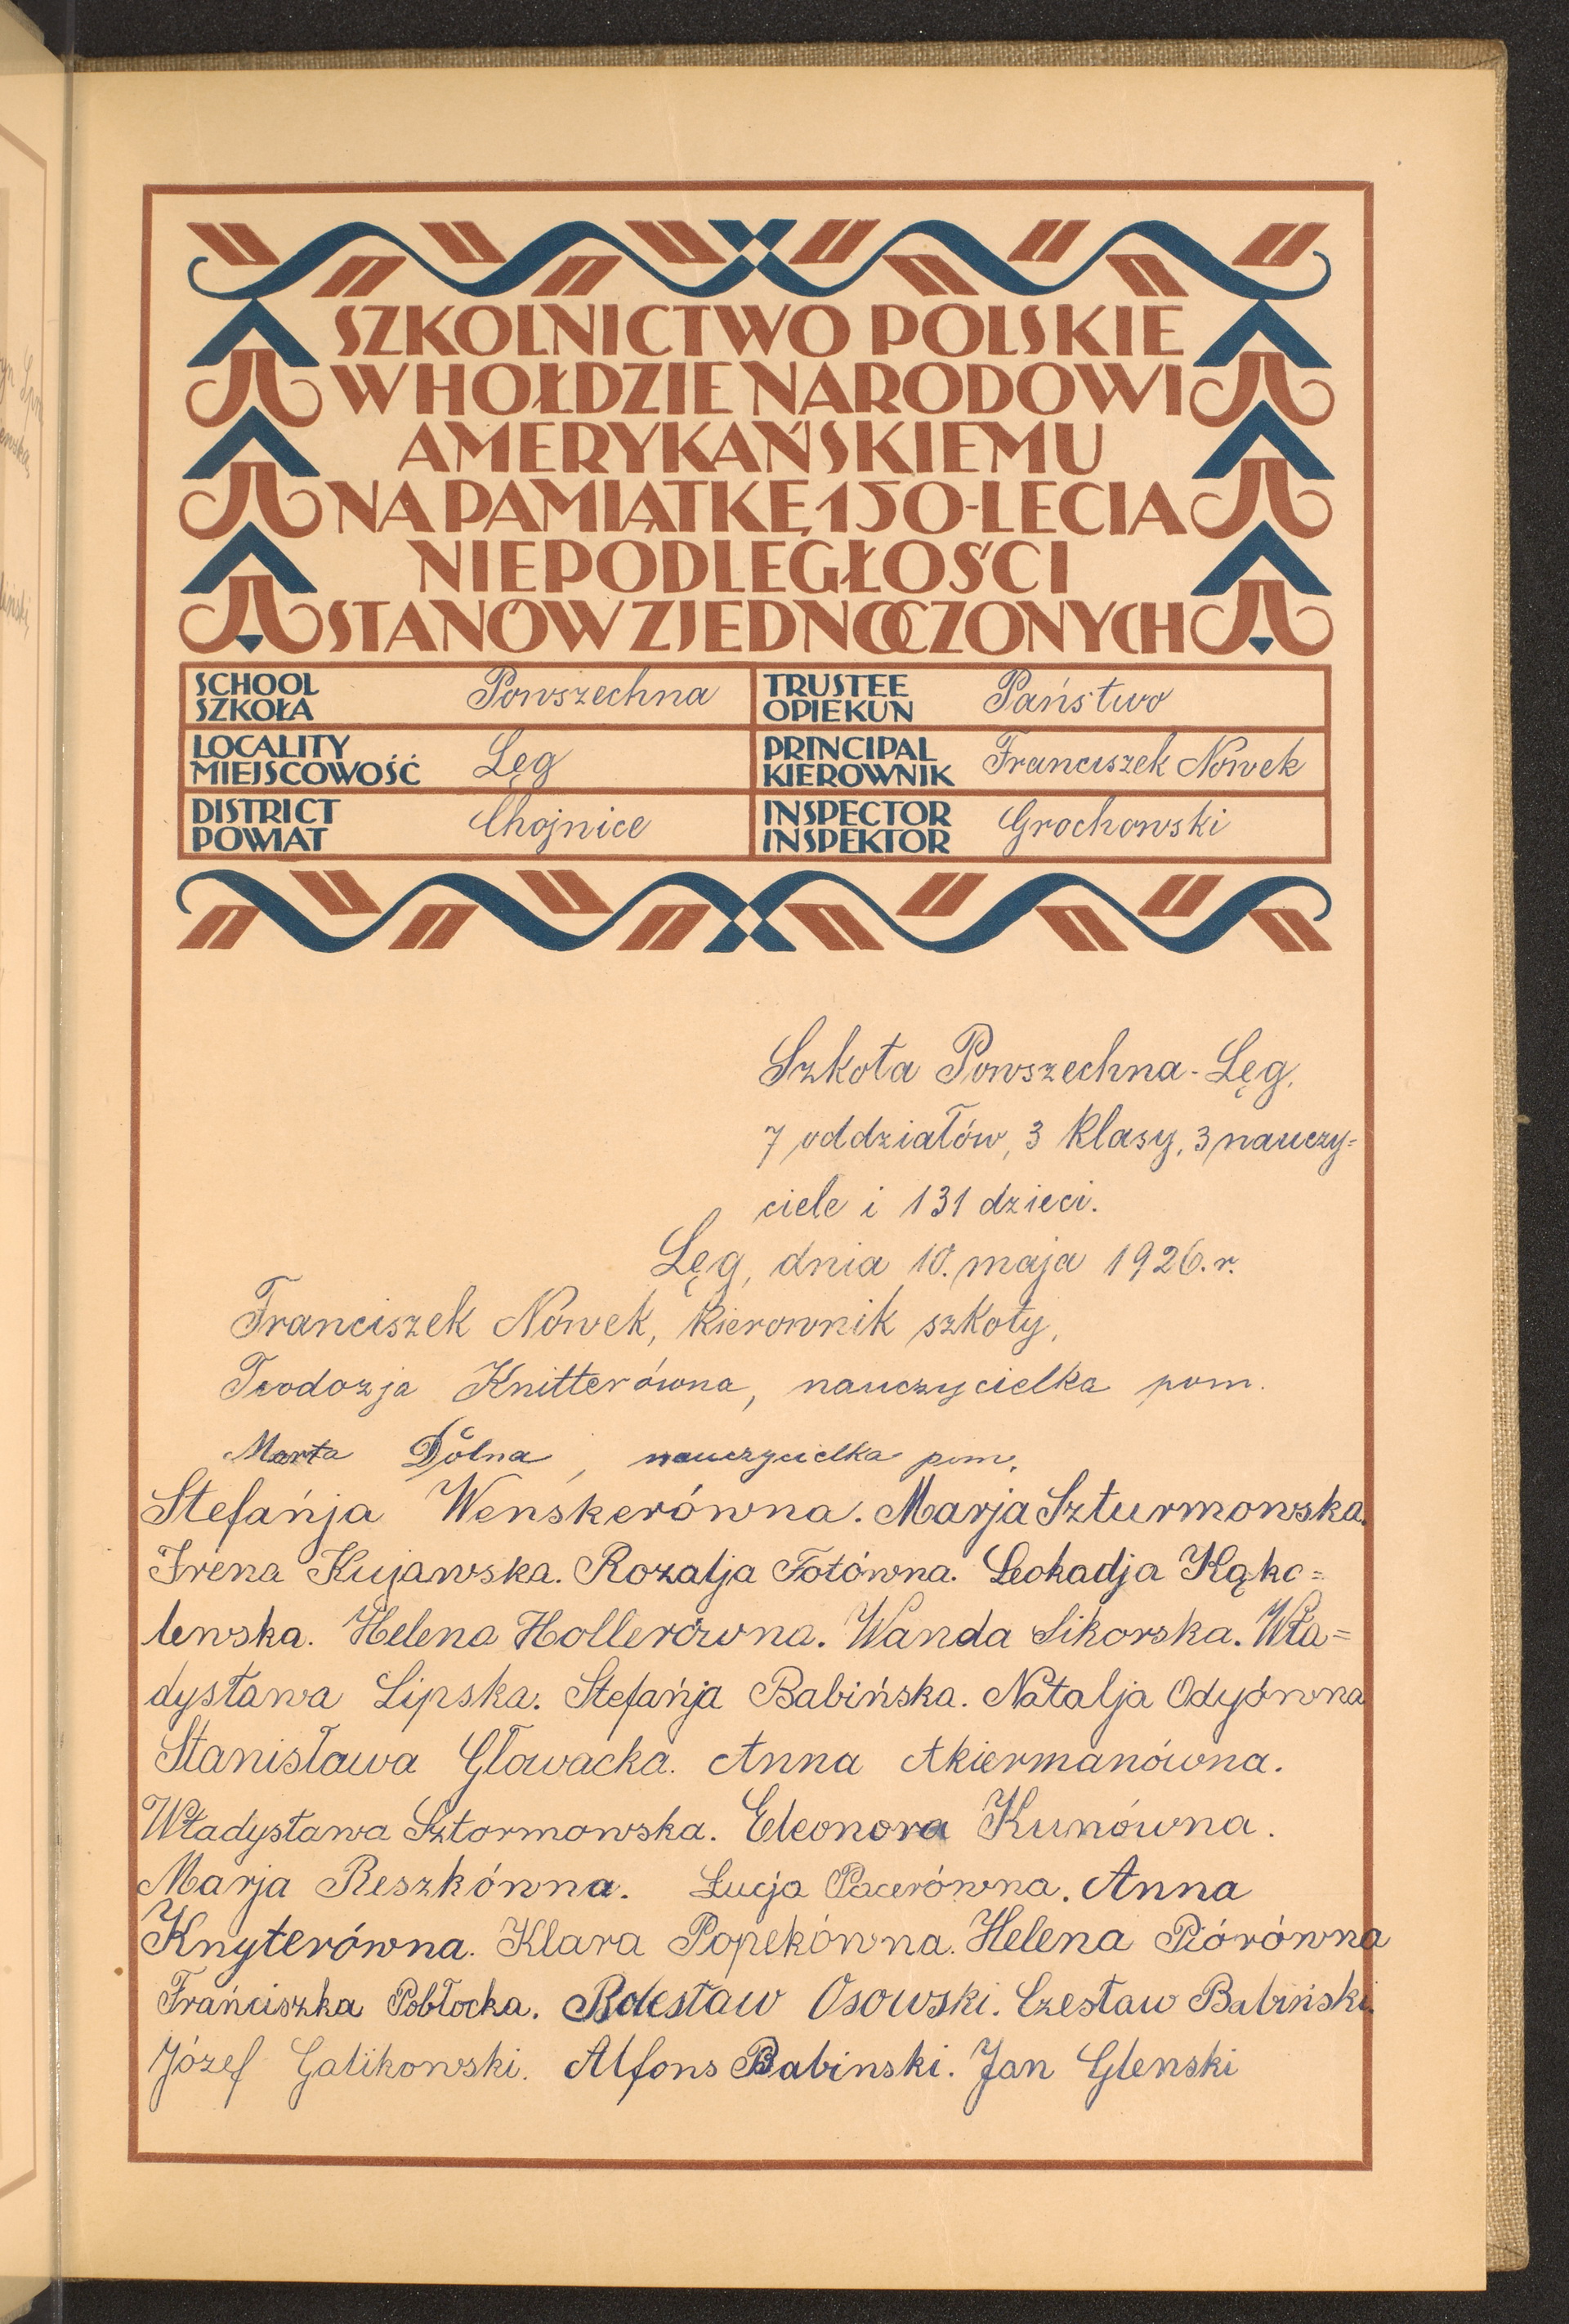 SZKOLNICTWO POLSKIE
W HOŁDZIE NARODOWI
AMERYKAŃSKIEMU
NA PAMIĄTKĘ 150-LECIA
NIEPODLEGŁOŚCI
STANÓW ZJEDNOCZONYCH
SCHOOL SZKOŁA Powszechna TRUSTEE OPIEKUN Państwo
LOCALITY MIEJSCOWOŚĆ Łęg PRINCIPAL KIEROWNIK Franciszek Nowek
DISTRICT POWIAT Chojnice INSPECTOR INSPEKTOR Grochowski
Szkoła Powszechna - Łęg.
7 oddziałów, 3 klasy, 3 nauczy=
ciele i 131 dzieci.
Łęg, dnia 10. maja 1926. r.
Franciszek Nowek, kierownik szkoły,
Teodozja Knitterówna, nauczycielka pom.
Marta Dolna, nauczycielka pom.
Stefańja Wenskerówna. Marja Szturmowska.
Irena Kujawska. Rozalja Fotówna. Leokadja Kąko=
lewska. Helena Hollerówna. Wanda Sikorska. Wła=
dysława Lipska. Stefańja Babińska. Natalja Odyówna
Stanisława Głowacka. Anna Akiermanówna.
Władysława Sztormowska. Eleonora Kunówna.
Marja Reszkówna. Łucja Pacerówna. Anna
Knyterówna. Klara Popekówna. Helena Piórówna
Frańciszka Pobłocka. Bolesław Osowski. Czesław Babiński.
Józef Galikowski. Alfons Babinski. Jan Glenski